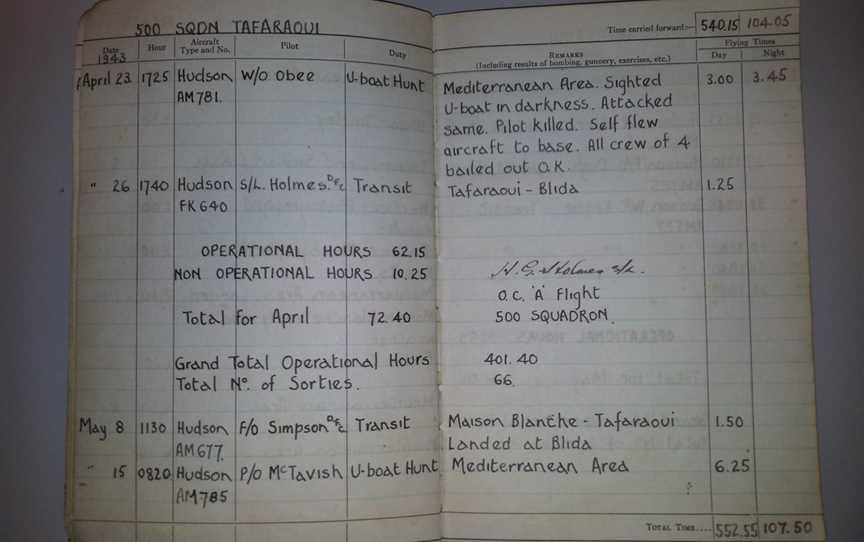 500 SQDN TAFARAOUI
Time carried forward:— 540.15 104.05
Date Hour Aircraft Type and No. Pilot Duty REMARKS (Including results of bombing, gunnery, exercises, etc.) Flying Times Day Night
1943
April 23 1725 Hudson W/O Obee U-boat Hunt Mediterranean Area. Sighted 3.00 3.45
AM781. U-boat in darkness. Attacked
same. Pilot killed. Self flew
aircraft to base. All crew of 4
bailed out O.K.
" 26 1740 Hudson S/L. Holmes. DFC Transit Tafaraoui - Blida 1.25
FK640
OPERATIONAL HOURS 62.15
NON OPERATIONAL HOURS 10.25 H. G. Holmes S/L.
O.C. 'A' Flight
Total for April 72.40 500 SQUADRON.
Grand Total Operational Hours 401.40
Total No. of Sorties. 66.
May 8 1130 Hudson F/O Simpson DFC Transit Maison Blanche - Tafaraoui 1.50
AM677. Landed at Blida
" 15 0820 Hudson P/O McTavish U-boat Hunt Mediterranean Area 6.25
AM785
TOTAL TIME.... 552.55 107.50